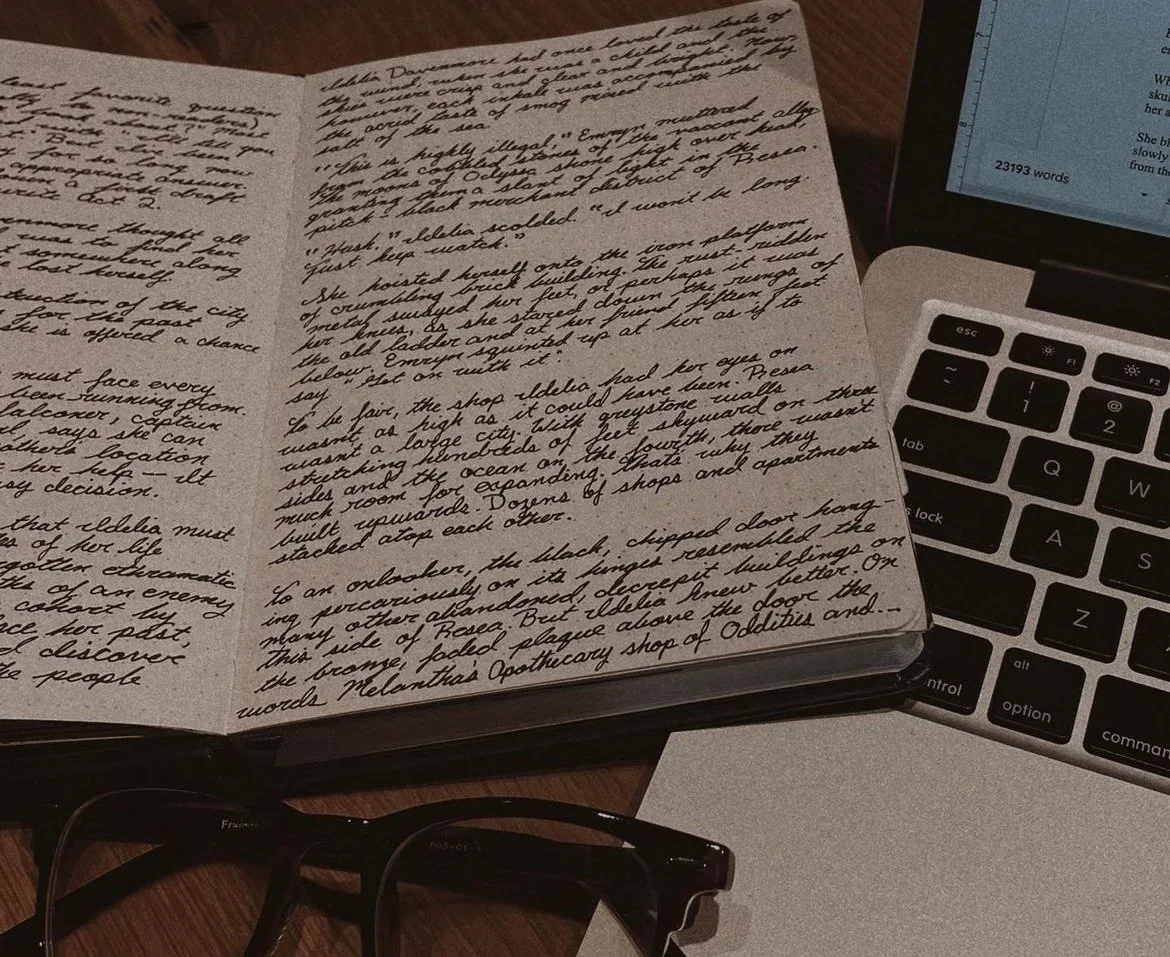 least favorite question
to non-readers)
book about?" Most
with "I'll tell you
out." But, I've been
for so long now
appropriate answer.
a first draft
write Act 2.
venmore thought all
was to find her
somewhere along
lost herself.
truction of the city
for the past
she is offered a chance
must face every
been running from.
falconer, captain
says she can
father's location
her help — It
easy decision.
that Idelia must
of her life
gotten
of an enemy
cohort by
face her past,
d discover
the people
Idelia Davenmore had once loved the taste of
the wind, when she was a child and the
skies were crisp and clear and bright. Now,
however, each inhale was accompanied by
the acrid taste of smog mixed with the
salt of the sea.
"This is highly illegal," Emryn muttered
from the cobbled stones of the vacant alley.
The moons of Odyssa shone high over head,
granting them a slant of light in the
pitch-black merchant district of Presea.
"Hush," Idelia scolded. "I won't be long.
Just keep watch."
She hoisted herself onto the iron platform
of crumbling brick building. The rust-ridden
metal swayed her feet, or perhaps it was
her knees, as she stared down the rungs of
the old ladder and at her friend fifteen feet
below. Emryn squinted up at her as if to
say "Get on with it".
To be fair, the shop Idelia had her eyes on
wasn't as high as it could have been. Presea
wasn't a large city. With greystone walls
stretching hundreds of feet skyward on three
sides and the ocean on the fourth, there wasn't
much room for expanding. That's why they
built upwards. Dozens of shops and apartments
stacked atop each other.
To an onlooker, the black, chipped door hang-
ing percariously on its hinges resembled the
many other abandoned, decrepit buildings on
this side of Presea. But Idelia knew better. On
the bronze, faded plaque above the door the
words Melantha's Apothecary shop of Oddities and...
Wh
sku
her a
She bl
slowly
from the
23193 words
esc
F1
F2
~
!
1
@
2
tab
Q
W
s lock
A
S
Z
ntrol
alt
option
comman